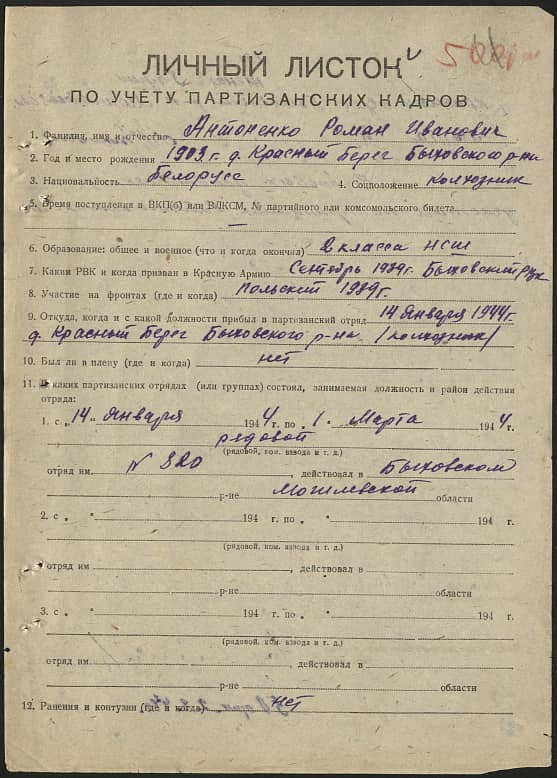 ЛИЧНЫЙ ЛИСТОК
ПО УЧЕТУ ПАРТИЗАНСКИХ КАДРОВ
1. Фамилия, имя и отчество Антоненко Роман Иванович
2. Год и место рождения 1903 г. д. Красный Берег Быховского р-на
3. Национальность Белорусс 4. Соцположение колхозник
5. Время поступления в ВКП(б) или ВЛКСМ, № партийного или комсомольского билета
—
6. Образование: общее и военное (что и когда окончил) 2 класса НСШ
7. Каким РВК и когда призван в Красную Армию Сентябрь 1939г. Быховский РВК
8. Участие на фронтах (где и когда) Польский 1939г.
9. Откуда, когда и с какой должности прибыл в партизанский отряд 14 Января 1944г.
д. Красный Берег Быховского р-на /колхозник/
10. Был ли в плену (где и когда) нет
11. В каких партизанских отрядах (или группах) состоял, занимаемая должность и район действия
отряда:
1. с „14„ Января 1944 г. по „1." Марта 1944 г.
рядовой
(рядовой, ком. взвода и т. д.)
отряд им. № 820, действовал в Быховском
р-не Могилевской области
2. с „ " 194 г. по „ " 194 г.
(рядовой, ком. взвода и т. д.)
отряд им , действовал в
р-не области
3. с „ " 194 г. по „ " 194 г.
(рядовой, ком. взвода и т. д.)
отряд им. , действовал в
р-не области
12. Ранения и контузии (где и когда) нет